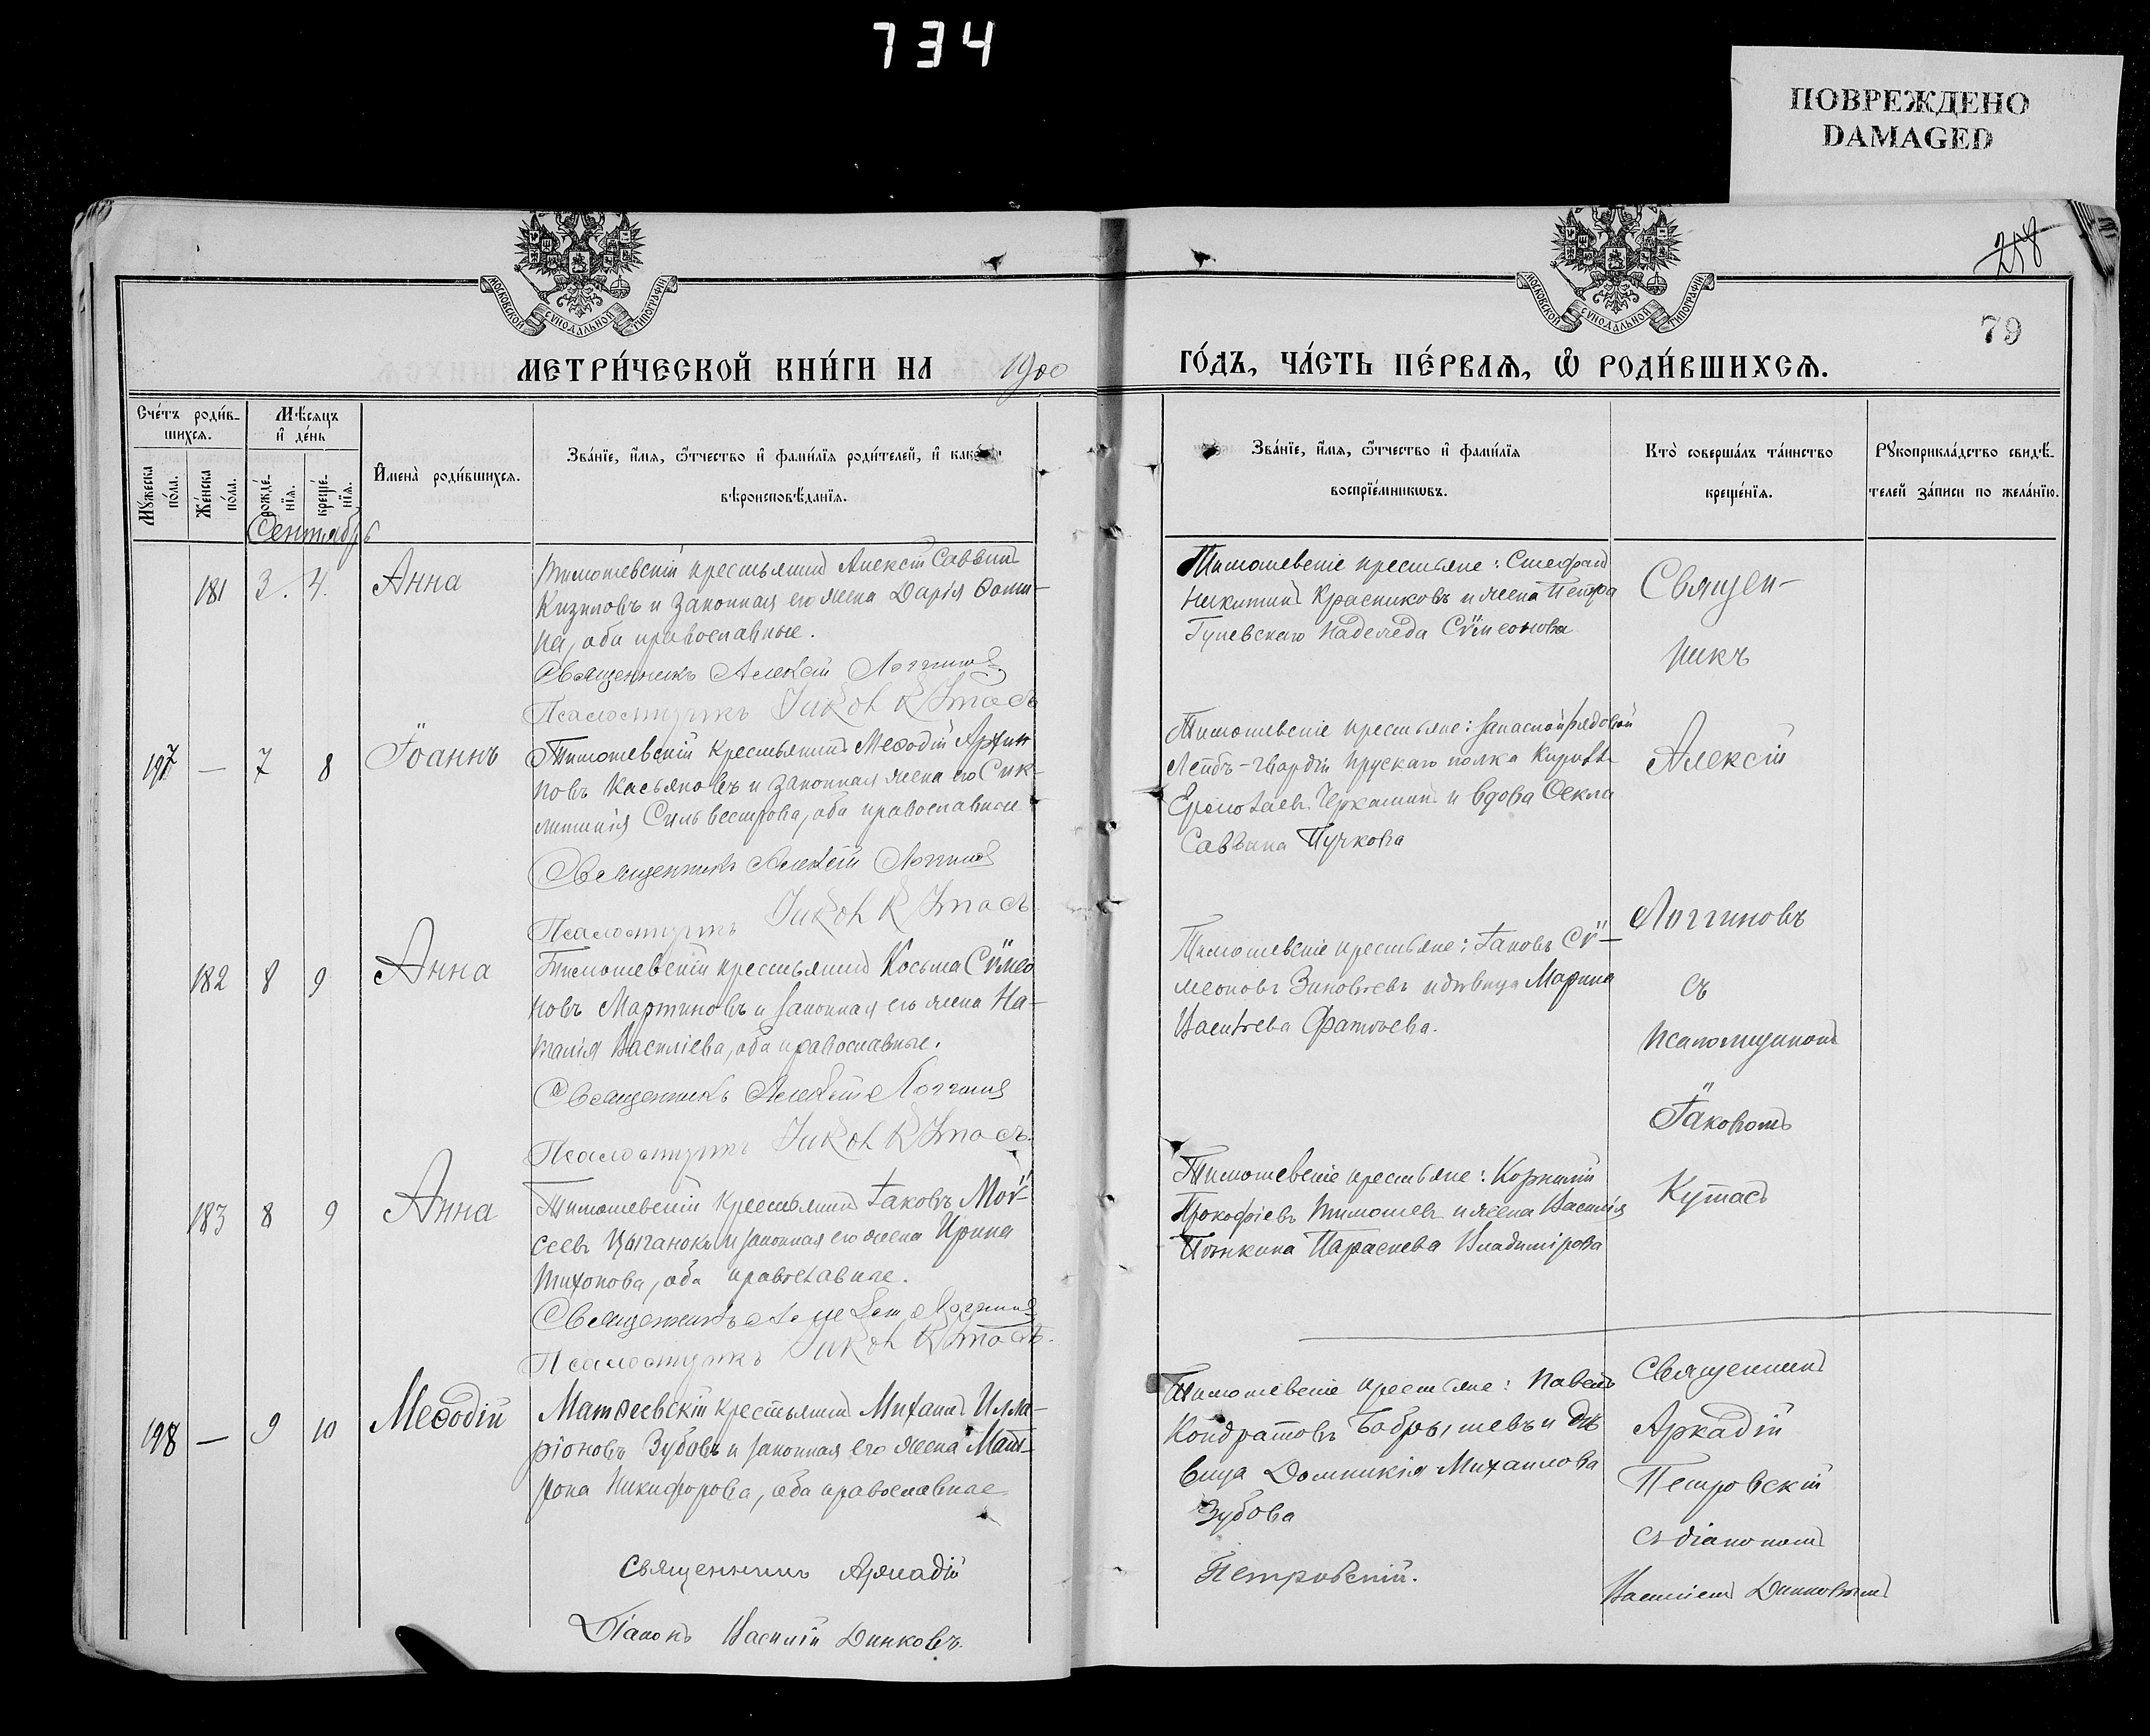 734
ПОВРЕЖДЕНО
DAMAGED
218
79
МОСКОВСКОЙ СѴНОДАЛЬНОЙ ТИПОГРАФІИ
МОСКОВСКОЙ СѴНОДАЛЬНОЙ ТИПОГРАФІИ
МЕТРИ́ЧЕСКОЙ КНИ́ГИ НА 1900
ГО́ДЪ, ЧА́СТЬ ПЕ́РВАЯ, Ѡ РОДИ́ВШИХСЯ.
Сче́тъ роди́в-
шихся.
Мѣ́сяцъ
и де́нь
Мꙋ́жеска
по́ла.
Же́нска
по́ла.
рожде́-
нїя.
креще́-
нїя.
Имена̀ роди́вшихся.
Зва́нїе, и́мя, ѻ́тчество и фами́лїя роди́телей, и како́
вѣроисповѣ́данїя.
Зва́нїе, и́мя, ѻ́тчество и фами́лїя
воспрїе́мникѡвъ.
Кто̀ соверша́лъ та́инство
креще́нїя.
Рꙋкоприкла́дство свидѣ́-
телей за́писи по жела́нїю.
Сентябрь
181 3. 4. Анна
Тимошевскій крестьянинъ Алексій Саввинъ
Кизиловъ и законная его жена Дарія Ѳоми-
на, оба православные.
Священникъ Алексій Логгинов
Псаломщикъ Іаков Кутасъ
Тимошевскіе крестьяне: Стефанъ
Никитинъ Красниковъ и жена Петра
Гулевскаго Надежда Сѵмеонова
Священ-
никъ
197 — 7 8 Іоаннъ
Тимошевскій крестьянинъ Меѳодій
новъ Касьяновъ и законная жена его Сик-
литикія Сильвестрова, оба православные
Священникъ Алексій Логгинов
Псаломщикъ Іаков Кутасъ
Тимошевскіе крестьяне: запасной рядовой
Лейбъ-гвардіи полка Кириллъ
Ермолаевъ и вдова Ѳекла
Саввина Пучкова
Алексій
182 8 9 Анна
Тимошевскій крестьянинъ Косьма Сѵмео
новъ Мартиновъ и законная его жена На-
талія Василіева, оба православные.
Священникъ Алексій Логгинов
Псаломщикъ Іаков Кутасъ
Тимошевскіе крестьяне: Іаковъ Сѵ-
меоновъ Зиновьевъ и дѣвица Марина
Логгиновъ
съ
псаломщикомъ
Іаковомъ
183 8 9 Анна
Тимошевскій крестьянинъ Іаковъ Моѵ-
сеевъ Цыганокъ и законная его жена Ирина
Тихонова, оба православные.
Священникъ Алексій Логгинов
Псаломщикъ Іаков Кутасъ.
Тимошевскіе крестьяне: Корнилій
Прокофіевъ Тимошевъ и жена Василія
Параскева Владимірова
Кутасъ
198 — 9 10 Меѳодій
Матѳеевскій крестьянинъ Михаилъ Илла-
ріоновъ Зубовъ и законная его жена Мат-
рона Никифорова, оба православные
Священникъ Аркадій
Петровскій.
Діаконъ Василій Динковъ.
Тимошевскіе крестьяне: Павелъ
Кондратовъ Бобрышевъ и дѣ
вица Домникія Михаилова
Зубова
Священникъ
Аркадій
Петровскій
съ діакономъ
Василіемъ Динковымъ